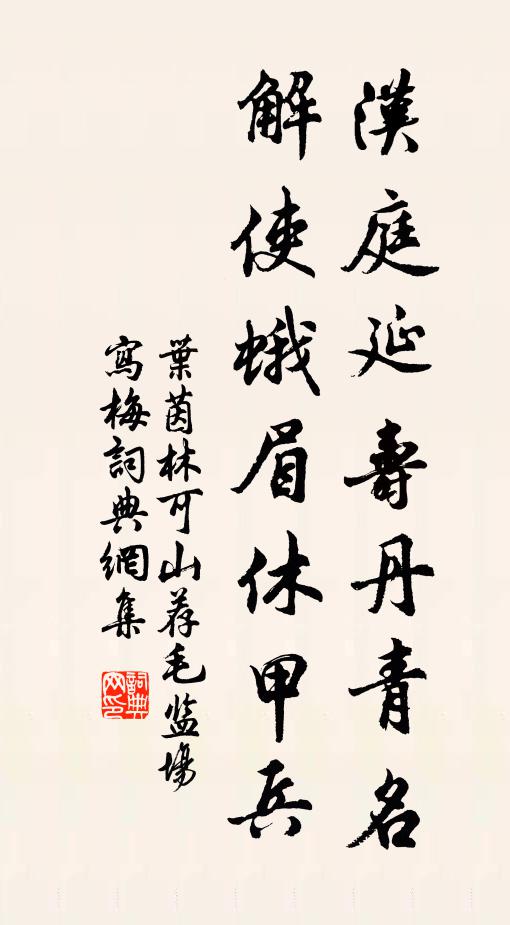 漢庭延壽丹青名
解使蛾眉休甲兵
葉茵林可山荐毛监場
寫梅詞典網集
詞典
网印